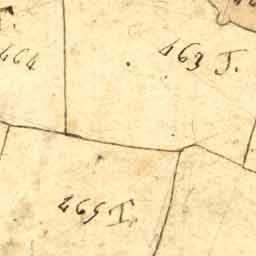 T.
464
463 T.
465 T.